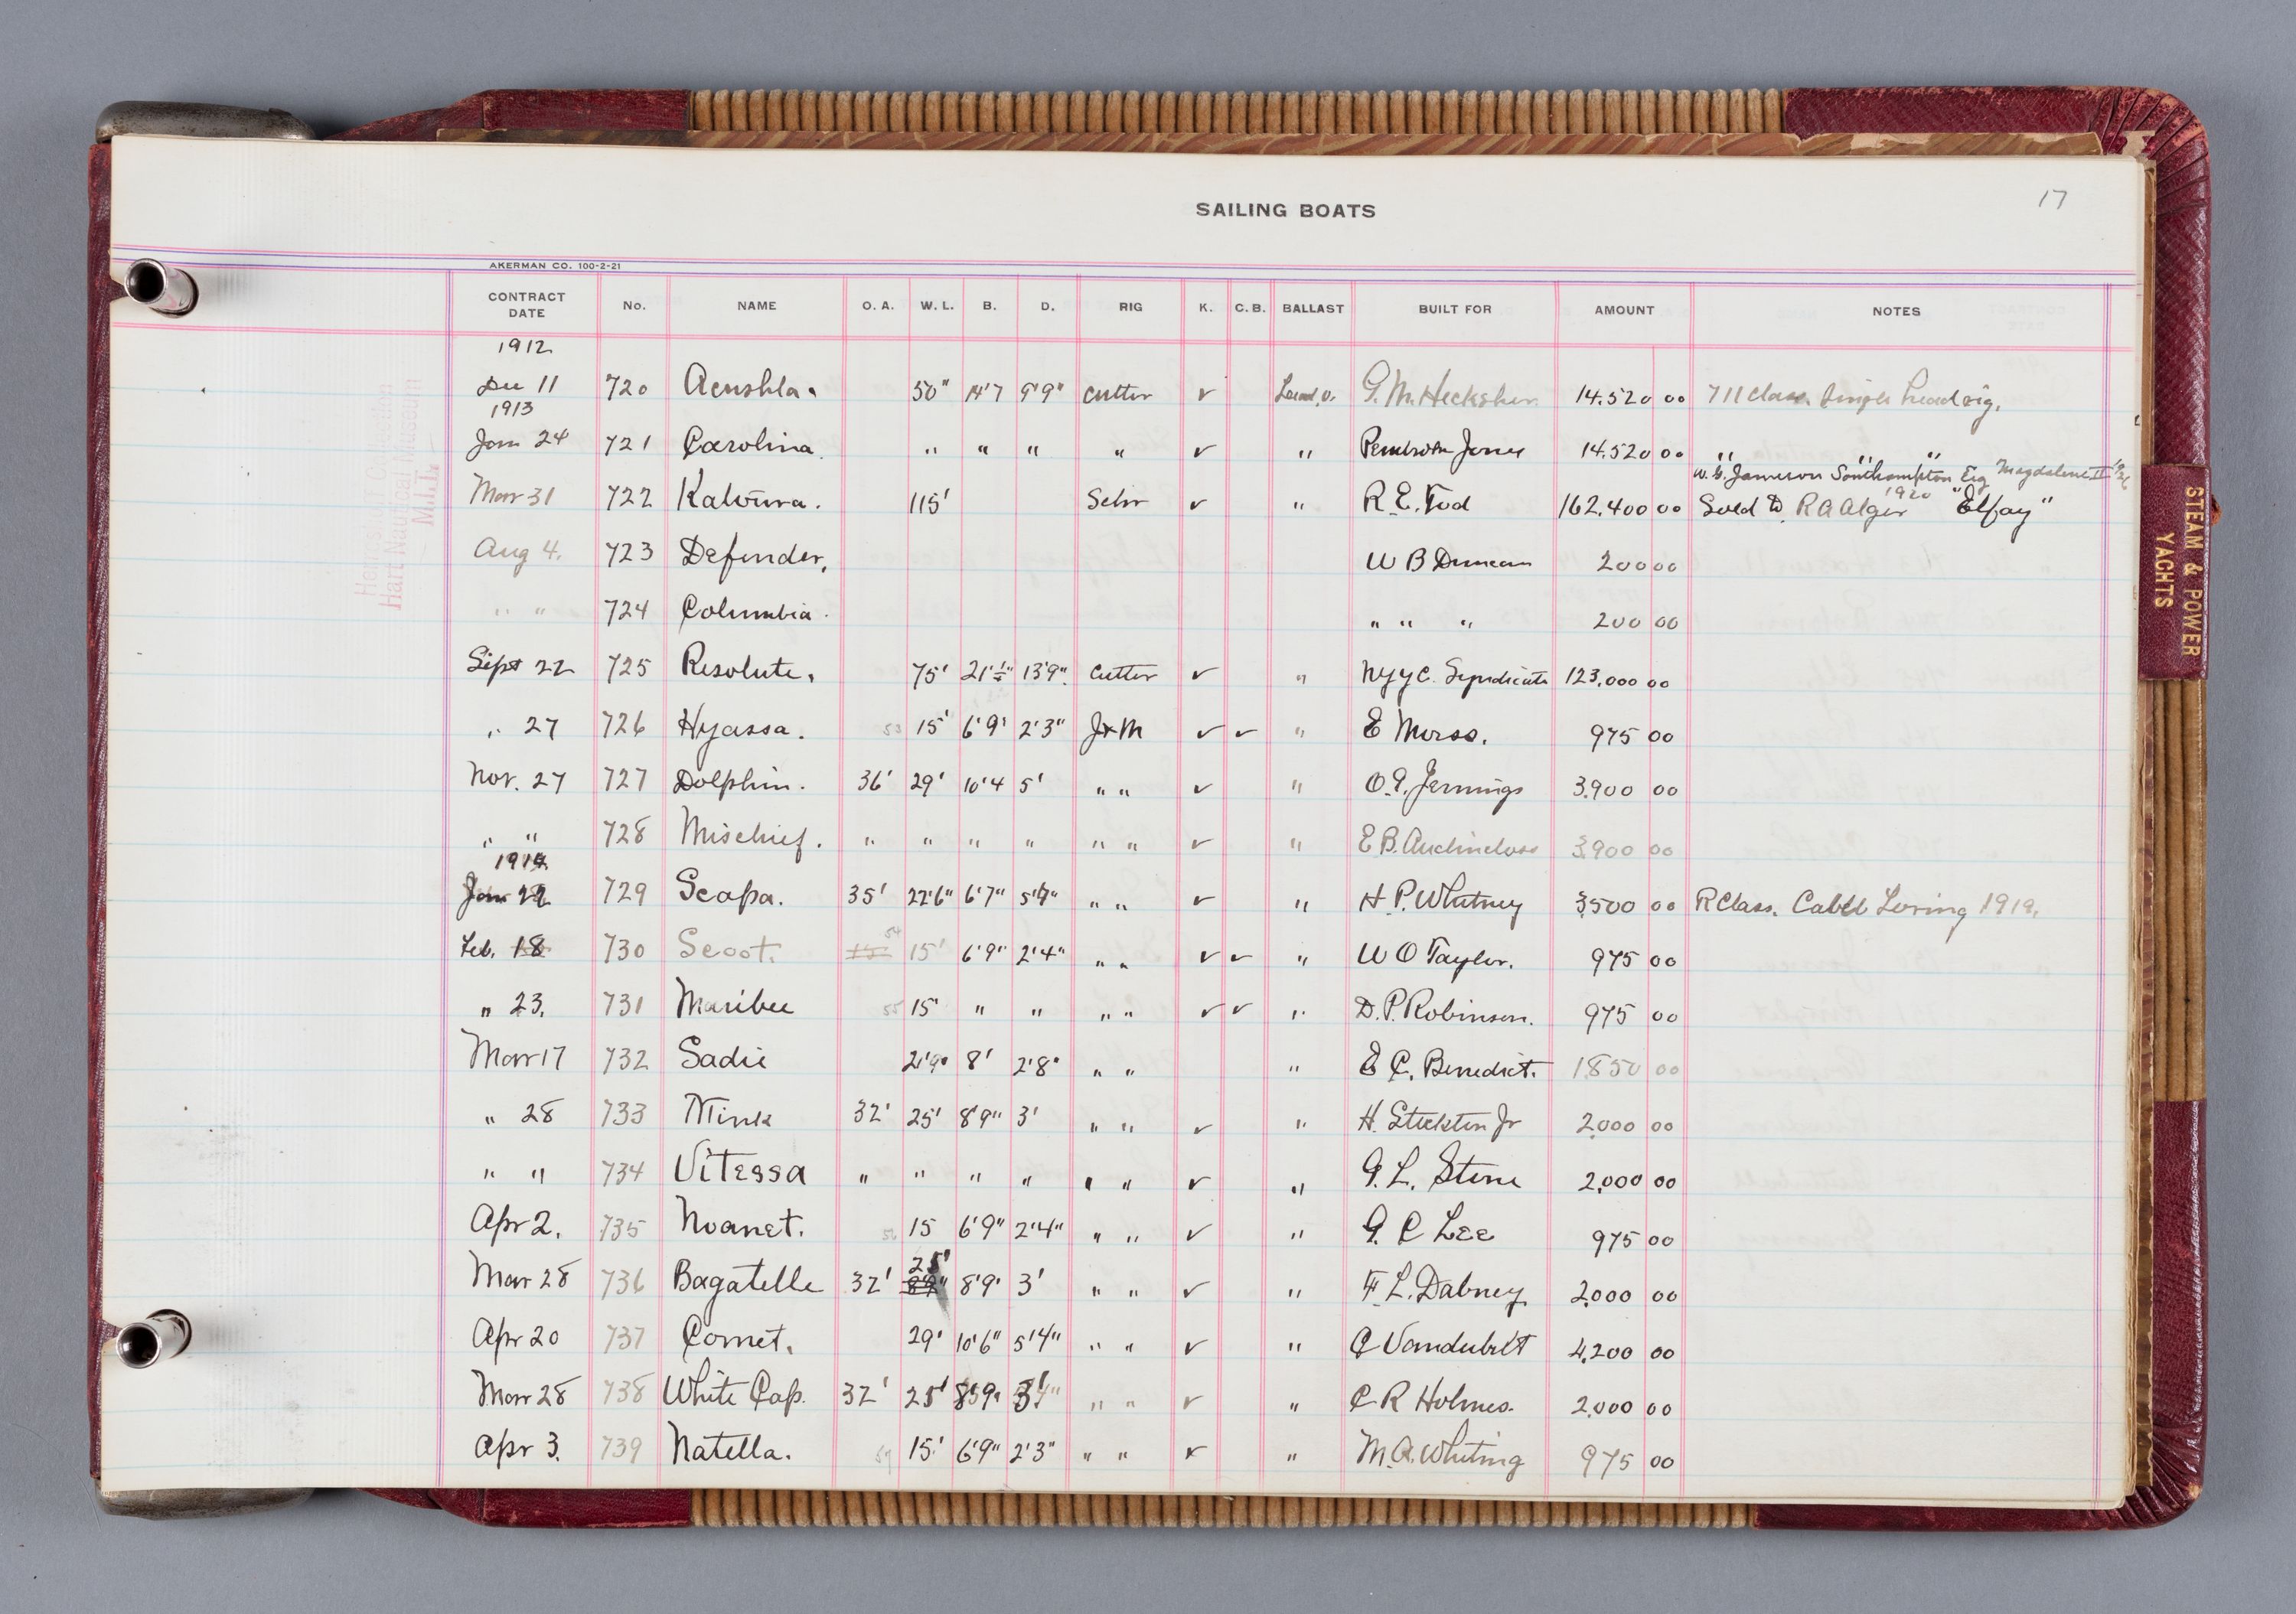 17
SAILING BOATS
AKERMAN CO. 100-2-21
CONTRACT DATE No. NAME O. A. W. L. B. D. RIG K. C. B. BALLAST BUILT FOR AMOUNT NOTES
1912
Dec 11 720 Acushla. 50" 14'7 9'9" Cutter ✓ Lead, o. G. M. Hecksher. 14.520 00 711 class. Single head rig.
1913
Jan 24 721 Carolina. " " " " ✓ " Pembroke Jones 14.520 00 " " "
W. G. Jameson Southampton Eng Magdalene II '26
Mar 31 722 Katoura. 115' Schr ✓ " R. E. Tod 162.400 00 Sold to R A Alger 1920 "Elfay"
Aug 4. 723 Defender, W B Duncan 200 00
" " 724 Columbia. " " " 200 00
Sept 22 725 Resolute. 75' 21'½" 13'9". Cutter ✓ " N Y Y C. Syndicate 123.000 00
" 27 726 Hyassa. 53 15' 6'9' 2'3" J+M ✓ ✓ " E Morss. 975 00
Nov. 27 727 Dolphin. 36' 29' 10'4 5' " " ✓ " O. G. Jennings 3.900 00
" " 728 Mischief. " " " " " " ✓ " E B. Auchincloss 3.900 00
1914
Jan 729 Scapa. 35' 22'6" 6'7" " " ✓ " H. P. Whitney 3.500 00 R Class. Cabell Loring 1919.
Feb. 18 730 Scoot. 54 15' 6'9" 2'4" " " ✓ ✓ " W O Taylor. 975 00
" 23. 731 Maribee 55 15' " " " " ✓ ✓ " D. P. Robinson. 975 00
Mar 17 732 Sadie 21'9" 8' 2'8" " " " E. C. Benedict. 1850 00
" 28 733 Mink 32' 25' 8'9" 3' " " ✓ " H. Stockton Jr 2.000 00
" " 734 Vitessa " " " " " " ✓ " G. L. Stone 2.000 00
Apr 2. 735 Noanet. 56 15 6'9" 2'4" " " ✓ " G. C Lee 975 00
Mar 28 736 Bagatelle 32' 25' 8'9" 3' " " ✓ " F. L. Dabney 2.000 00
Apr 20 737 Comet. 29' 10'6" 5'4" " " ✓ " C Vanderbilt 4.200 00
Mar 28 738 White Cap. 32' 25' 8'9" 3' " " ✓ " C R Holmes. 2.000 00
Apr 3. 739 Natella. 15' 6'9" 2'3" " " ✓ " M. A. Whiting 975 00
Hart Nautical Museum
M.I.T.
STEAM & POWER
YACHTS